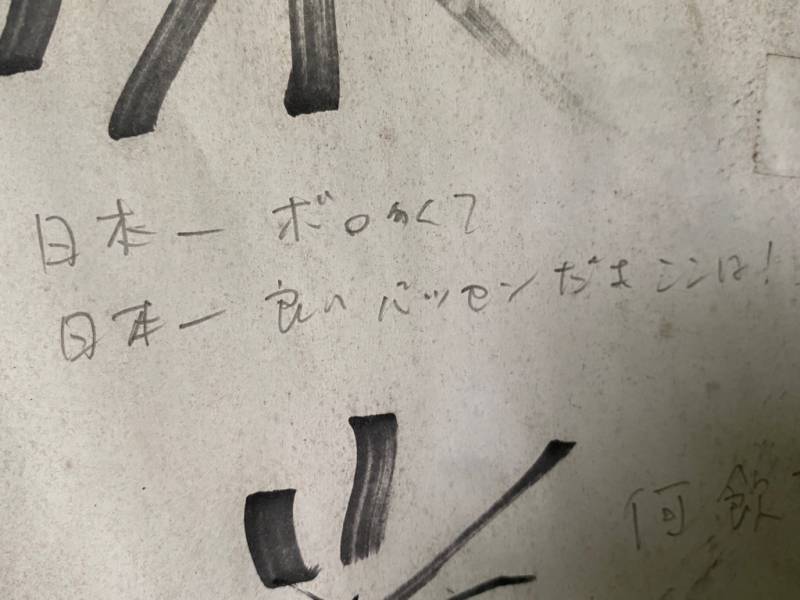 日本一 ボロくて
日本一 良い バッセン だよ ここは!
何飲